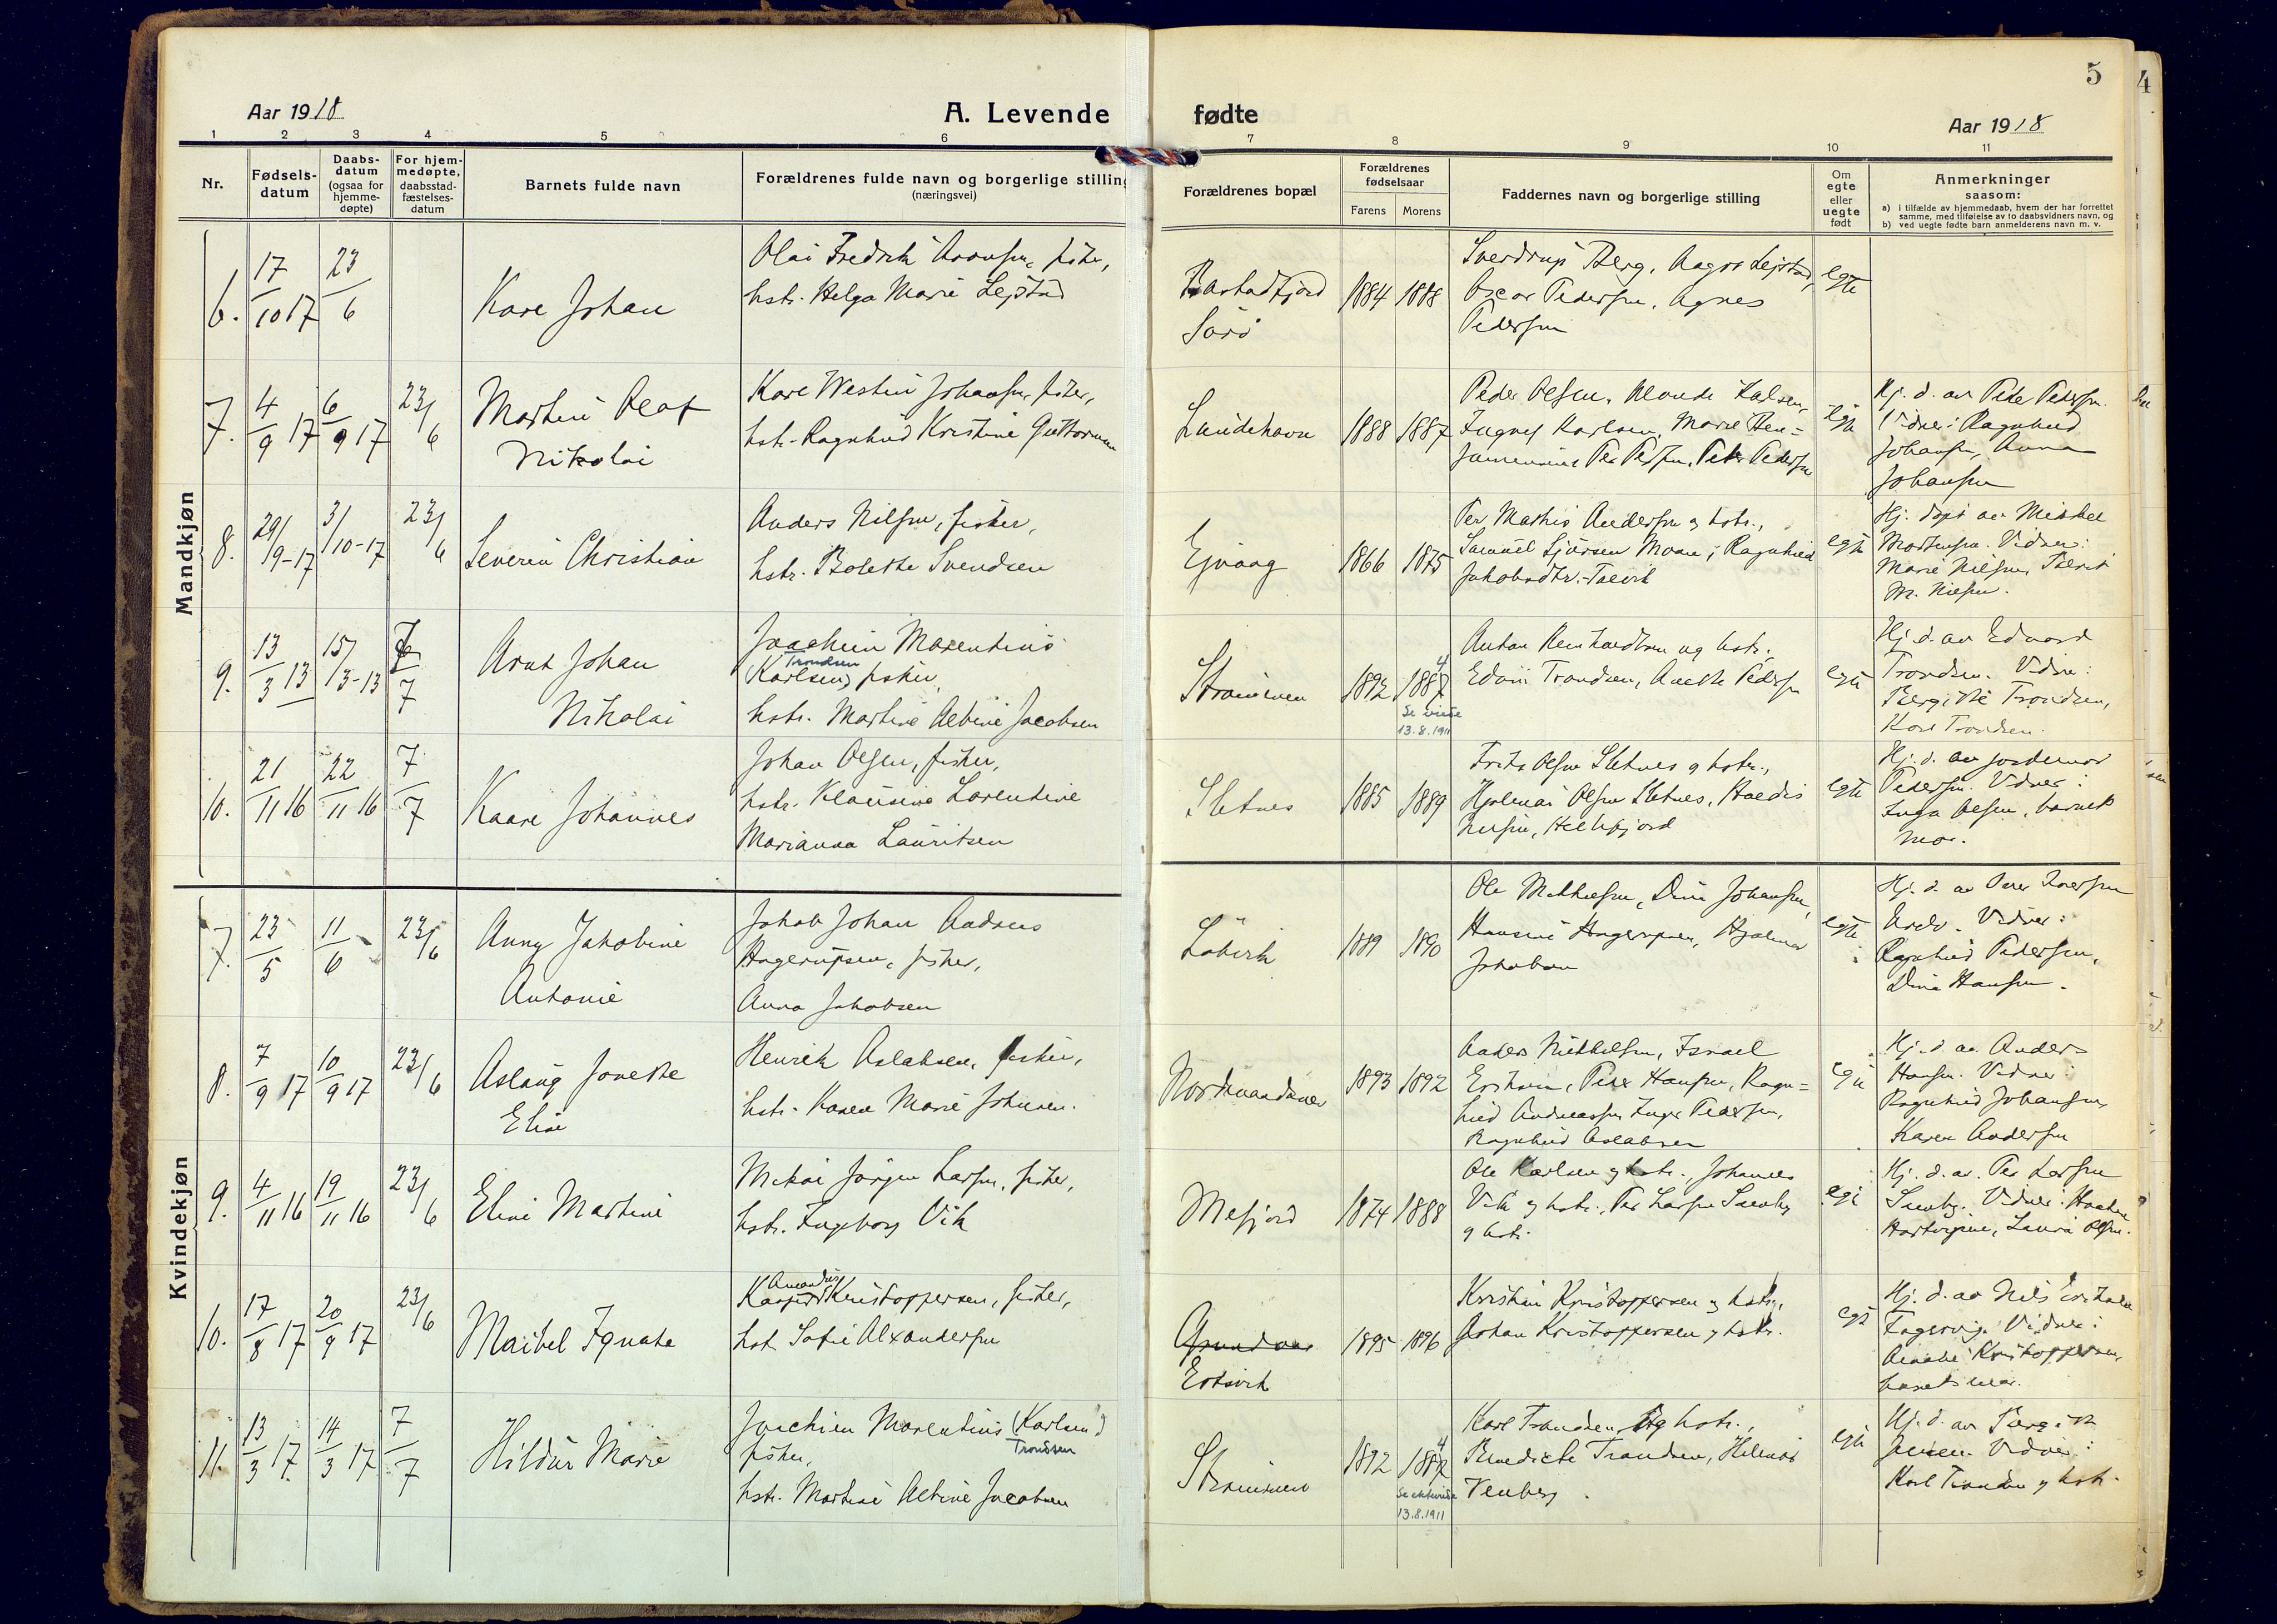 5
4
Aar 1918
A. Levende
fødte
Aar 1918
1 2 3 4 5 6 7 8 9 10 11
Nr.
Fødsels-
datum
Daabs-
datum
(ogsaa for
hjemme-
døpte)
For hjem-
medøpte,
daabsstad-
fæstelses-
datum
Barnets fulde navn
Forældrenes fulde navn og borgerlige stilling
(næringsvei)
Forældrenes bopæl
Forældrenes
fødselsaar
Farens Morens
Faddernes navn og borgerlige stilling
Om
egte
eller
uegte
født
Anmerkninger
saasom:
a) i tilfælde av hjemmedaab, hvem der har forrettet
samme, med tilføielse av to daabsvidners navn, og
b) ved uegte fødte barn anmelderens navn m. v.
Mandkjøn
6. 17/10 17 23/6
Kare Johan
Olai Fredrik Aronsen, fisker,
hstr. Helga Marie Lejstad
Sörö
1884 1888
Sverdrup Berg, Aagot Lejstad,
Oscar Pedersen, Agnes
Pedersen
egte
7. 4/9 17 6/9 17 23/6
Martin Olaf
Nikolai
Kare Westin Johansen, fisker,
hstr. Ragnhild Kristine Guttormsen
Lundehavn
1888 1887
Peder Olsen,
Karlsen, Marie
Peder Pedersen
egte
Hj. d. av Peder Pedersen.
Vidner: Ragnhild
Johansen, Anna
Johansen
8. 29/9-17 3/10-17 23/6
Severin Christian
Anders Nilsen, fisker,
hstr. Bolette Svendsen
Ejvaag
1866 1875
Per Mathis Andersen og hstr.,
Samuel Sjursen Moan, Ragnhild
egte
Hj. døpt av Mikkel
Mortensen. Vidner:
Marie Nilsen, Berit
M. Nilsen.
9. 13/3 13 15/3-13 7/7
Arnt Johan
Nikolai
Joachim Marentius
Trondsen
(Karlsen) fisker,
hstr. Martine Albine Jacobsen
Strömmen
1892 1887
4
Se vielse
13.8.1911
Anton Reinhardtsen og hstr.,
Edvin Trondsen, Anette Pedersen
egte
Hj. d. av Edvard
Trondsen. Vidner:
Bergitte Trondsen,
Karl Trondsen.
10. 21/11 16 22/11 16 7/7
Kaare Johannes
Johan Olsen, fisker,
hstr. Klausine Lorentine
Marianna Lauritsen
Sletnes
1885 1889
Frits Olsen Sletnes og hstr.,
Hjalmar Olsen Sletnes,
egte
Hj. d. av jordemor
Pedersen. Vidner:
Inga Olsen, barnets
mor.
Kvindekjøn
7. 23/5 11/6 23/6
Anny Jakobine
Antonie
Jakob Johan Andreas
Hagerupsen, fisker,
Anna Jakobsen
Løkvik
1889 1890
Ole Mikkelsen, Dina Johansen,
Hansine Hagerupsen, Hjalmar
Jakobsen
egte
Ragnhild Pedersen,
Dina Hansen.
8. 7/9 17 10/9 17 23/6
Aslaug Jonette
Elise
Henrik Aslaksen, fisker,
hstr. Karen Marie Johnsen.
Nordmandsnes
1893 1892
Anders Mikkelsen, Israel
Peder Hansen, Ragn-
hild Andreassen, Inger Pedersen,
Ragnhild Aslaksen
egte
Hj. d. av Anders
Hansen. Vidner:
Ragnhild Johansen,
Karen Andersen
9. 4/11 16 19/11 16 23/6
Eline Martine
Mikal Jörgen Larsen, fisker,
hstr. Ingeborg Vik
Mefjord
1874 1888
Ole Karlsen og hstr., Johannes
Vik og hstr., Per Larsen
og hstr.
egte
Hj. d. av Per Larsen
Vidner:
Laura Olsen.
10. 17/8 17 20/9 17 23/6
Maibel Ignata
Amandus
Kristoffersen, fisker,
hst. Sofie Alexandersen
Eidsvik
1895 1896
Kristian Kristoffersen og hstr.,
Johan Kristoffersen og hstr.
egte
Hj. d. av Nils
Vidner:
Kristoffersen,
barnets mor.
11. 13/3 17. 14/3 17 7/7
Hildur Marie
Joachim Marentius (Karlsen)
Trondsen
fisker,
hstr. Martine Albine Jacobsen
Strömmen
1892
4
13.8.1911
Karl Trondsen og hstr.,
Benedicte Trondsen, Hilmar
egte
Hj. d. av
Jensen. Vidner:
Karl Trondsen og hstr.